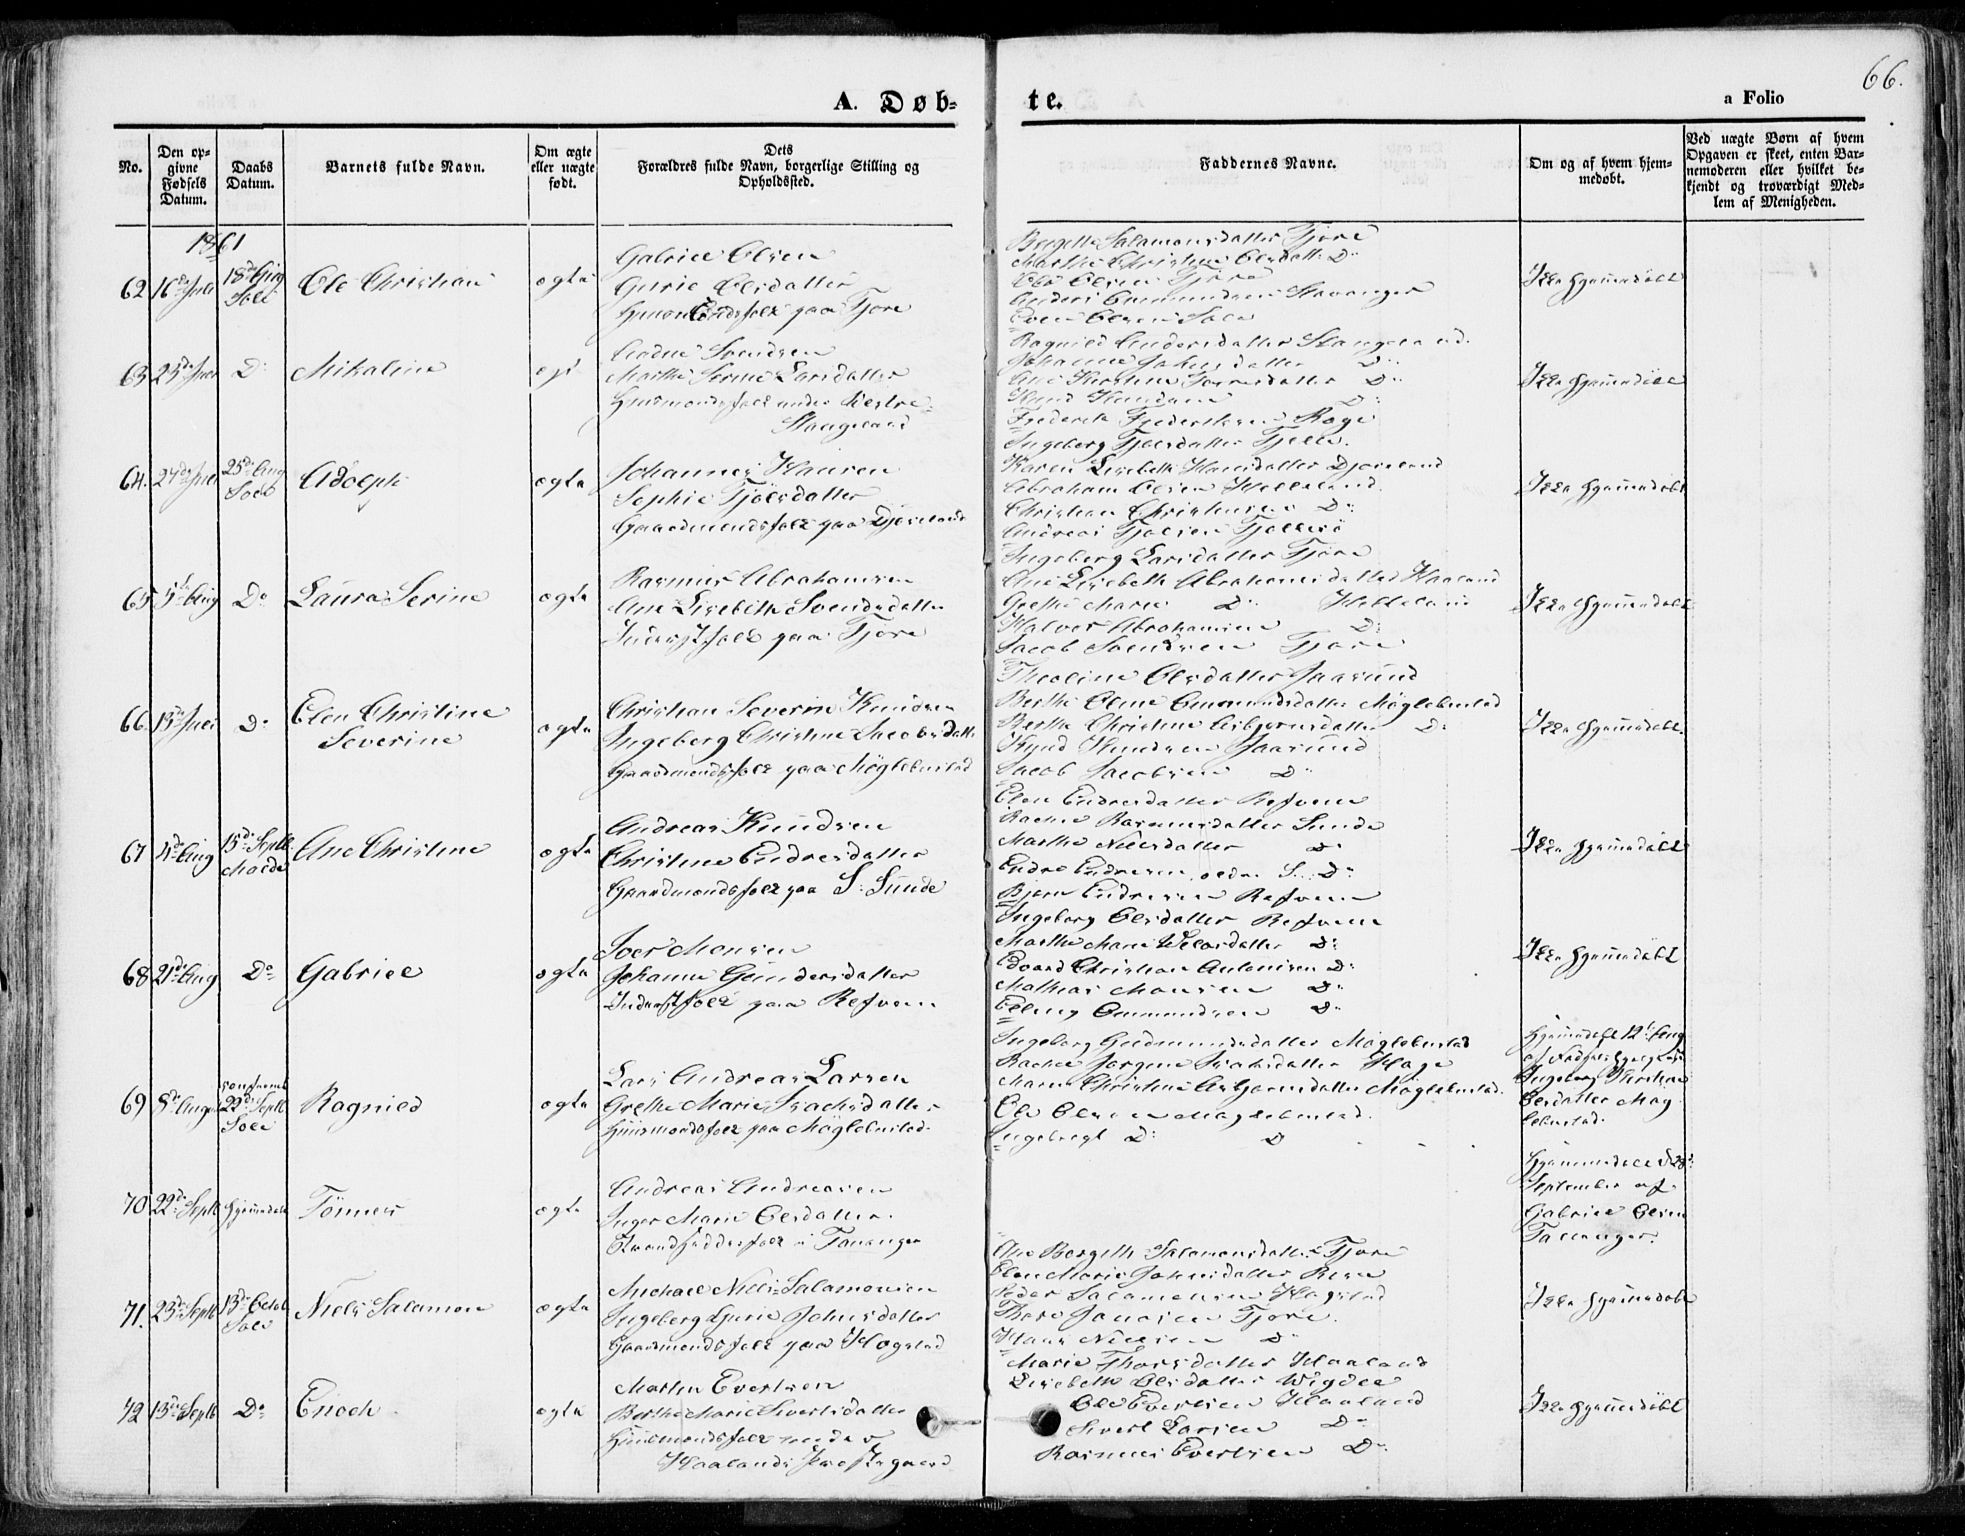 66.
A. Døb=
te.
a Folio
No.
Den op=
givne
Fødsels
Datum.
Daabs
Datum.
Barnets fulde Navn.
Om ægte
eller uægte
født.
Dets
Forældres fulde Navn, borgerlige Stilling og
Opholdssted.
Faddernes Navne.
Om og af hvem hjem=
medøbt.
Ved uægte Børn af hvem
Opgaven er skeet, enten Bar=
nemoderen eller hvilket be=
kjendt og troværdigt Med=
lem af Menigheden.
1861
62 16de Juli
18de Aug
Sole
Ole Christian
ægte
Gabriel Olsen
Gurie Olsdatter
Huusmandsfolk paa Tjore
Bergitte Salamonsdatter Tjore
Marthe Christine Olsdatter Do
Ole Olsen Tjore
Anders Ommundsen Stavanger
Even Olsen Sole
Ikke hjemmedøbt
63 23de Juli
Do
Mikaline
Svendsen
Marthe Serine Larsdatter
Huusmandsfolk under Vestre
Stangeland
Ragnild Andersdatter Stangeland
Johanne Johnsdatter Do
Knud Knudsen Do
Frederik Frederiksen Røge
Ikke hjemmedøbt
64. 27de Juli
25de Aug
Sole
Adolph
ægte
Johannes Hansen
Sophie Tjølsdatter
Gaardmandsfolk paa Djoseland
Ingeborg Tjølsdatter
Karen Lisebeth Hansdatter Djoseland
Abraham Olsen Helleland
Christian Christensen Do
Andreas Tjølsen
Ikke hjemmedøbt
65 5te Aug
Do
Laura Serine
ægte
Rasmus Abrahamsen
Ane Lisebeth Svendsdatter
Inderstfolk paa Tjore
Ingeborg Larsdatter Tjore
Ane Lisebeth Abrahamsdatter Haaland
Grethe Marie Do Helleland
Halvor Abrahamsen Do
Jacob Svendsen Tjore
Ikke hjemmedøbt
66. 13de Juli
Do
Elen Christine
Severine
ægte
Christian Severin Knudsen
Ingeborg Christine Jacobsdatter
Gaardmandsfolk paa Møglebustad
Theoline Olsdatter Jaasund
Berthe Oline Ommundsdatter Møglebustad
Berthe Christine Asbjørnsdatter Do
Knud Knudsen Jaasund
Jacob Jacobsen Do
Ikke hjemmedøbt.
67 4de Aug
15de Septb
Malde
Ane Christine
ægte
Andreas Knudsen
Christine Endresdatter
Gaardmandsfolk paa S: Sunde
Elen Endresdatter Refsnes
Rachel Rasmusdatter Sunde
Marthe Nielsdatter Do
Endre Endresen S. Do
Bjørn Endresen Refsnes
Ikke hjemmedøbt
68 21de Aug
Do
Gabriel
ægte
Joel Monsen
Johanne Gundersdatter
Inderstfolk paa Refsnes
Ingeborg Olsdatter Refsnes
Marthe Marie Do
Edvard Christian Antonisen Do
Mathias Monsen Do
Elling Ommundsen Do
Ikke hjemmedøbt
69 8de August
22de Septb
Sole
Ragnild
ægte
Lars Andreas Larsen
Grethe Marie Isachsdatter
Huusmandsfolk paa Møglebustad
Ingeborg Gudmundsdatter Møglebustad
Rachel Jørgine Isaksdatter Hage
Maren Christine Asbjørnsdatter Møglebustad.
Ole Olsen Møglebustad.
Engebregt Do Do
Hjemmedøbt 12te Aug
af
Ingeborg Christine
Olsdatter Møg
lebustad.
70 22de Septb
Hjemmedøbt
Tønnes
ægte
Andreas Andreasen
Inger Marie Olsdatter.
Strandsidderfolk i Tananger
Hjemmedøbt d 28de
September af
Gabriel Olsen
Tananger.
71. 23de Septb
13de Octob
Sole
Niels Salamon
ægte
Michael Niels Salamonsen
Ingeborg Gurie Johnsdatter
Gaardmandsfolk paa Hogstad
Ane Bergitte Salamonsdatter Tjore
Elen Marie Johnsdatter
Peder Salamonsen Hogstad
Thore Jonasen Tjore.
Hans Nielsen Do
Ikke hjemmedøbt
72 13de Septb
Do
Enoch
ægte
Martin Evertsen
Berthe Marie Sivertsdatter
Huusmandsfolk under
Haalands Præstegaard
Marie Thorsdatter Haaland
Lisebeth Olsdatter Wigdel
Ole Evertsen Haaland
Sivert Larsen Do
Rasmus Evertsen Do
Ikke hjemmedøbt